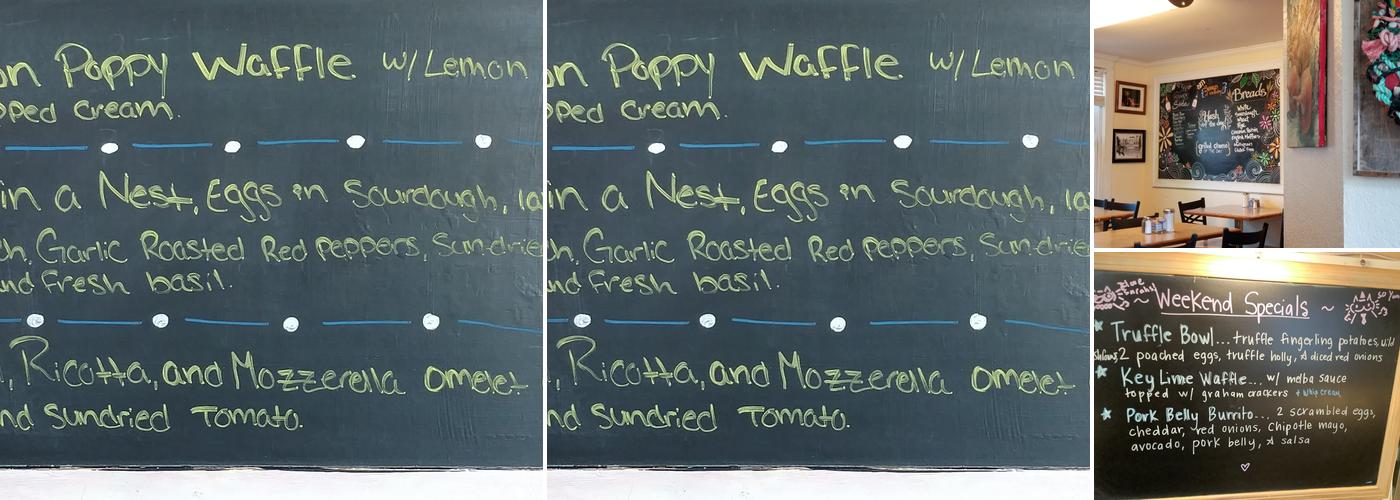 on Poppy Waffle w/ Lemon
pped cream.
in a Nest, Eggs in Sourdough,
Garlic Roasted Red peppers, Sun-drie
and Fresh basil.
, Ricotta, and Mozzerella omelet
nd sundried Tomato.
on Poppy Waffle w/ Lemon
pped cream.
in a Nest, Eggs in Sourdough,
Garlic Roasted Red peppers, Sun-drie
and Fresh basil.
, Ricotta, and Mozzerella omelet
nd sundried Tomato.
Breads
White
Rye
Gluten Free
Hash
of the day
grilled cheese
of the day
~ Weekend Specials ~
Truffle Bowl... truffle fingerling potatoes, wild
2 poached eggs, truffle holly, & diced red onions
Key Lime Waffle... w/ melba sauce
topped w/ graham crackers + whip cream
Pork Belly Burrito... 2 scrambled eggs,
cheddar, red onions, Chipotle mayo,
avocado, pork belly, & salsa